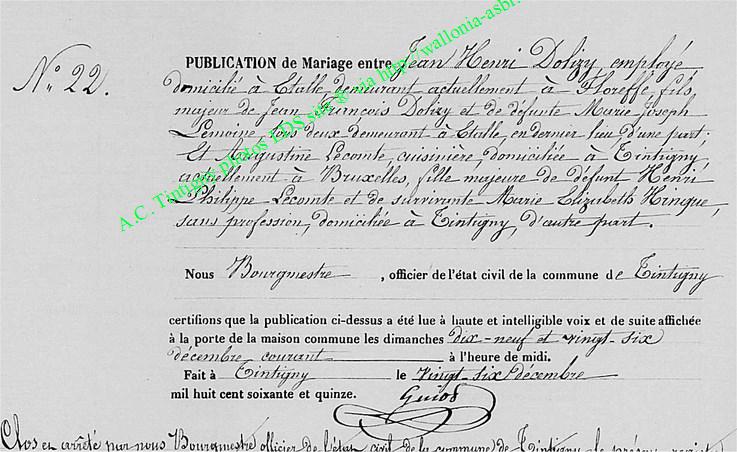 N° 22.
PUBLICATION de Mariage entre Jean Henri Dolizy employé
domicilié à Etalle demeurant actuellement à Floreffe, fils
majeur de Jean François Dolizy et de défunte Marie Joseph
Lemoine, tous deux demeurant à Etalle, en dernier lieu, d'une part;
Et Augustine Lecomte, cuisinière, domiciliée à Tintigny,
actuellement à Bruxelles, fille majeure de défunt Henri
Philippe Lecomte et de survivante Marie Elizabeth Hinque,
sans profession, domiciliée à Tintigny, d'autre part.
Nous Bourgmestre, officier de l'état civil de la commune de Tintigny
certifions que la publication ci-dessus a été lue à haute et intelligible voix et de suite affichée
à la porte de la maison commune les dimanches dix-neuf et vingt-six
décembre courant à l'heure de midi.
Fait à Tintigny le vingt-six Décembre
mil huit cent soixante et quinze.
Guiot
Clos et arrêté par nous Bourgmestre officier de l'état civil de la commune de Tintigny le présent
A.C. Tintigny photos LDS site & via http://wallonia-asbl.